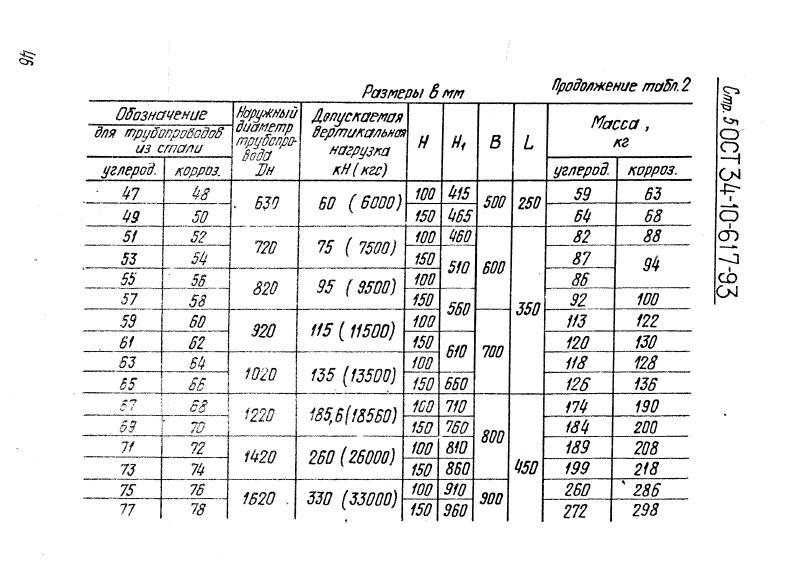 46
Стр. 5 ОСТ 34-10-617-93
Размеры в мм
Продолжение табл. 2
Обозначение
для трубопроводов из стали
углерод. корроз.
Наружный диаметр трубопро-вода Dн
Допускаемая вертикальная нагрузка кН (кгс)
H H₁ B L
Масса, кг
углерод. корроз.
47 48 630 60 (6000) 100 415 500 250 59 63
49 50 150 465 64 68
51 52 720 75 (7500) 100 460 600 350 82 88
53 54 150 510 87 94
55 56 820 95 (9500) 100 86
57 58 150 560 92 100
59 60 920 115 (11500) 100 700 113 122
61 62 150 610 120 130
63 64 1020 135 (13500) 100 118 128
65 66 150 660 126 136
67 68 1220 185,6 (18560) 100 710 800 450 174 190
69 70 150 760 184 200
71 72 1420 260 (26000) 100 810 189 208
73 74 150 860 199 218
75 76 1620 330 (33000) 100 910 900 260 286
77 78 150 960 272 298